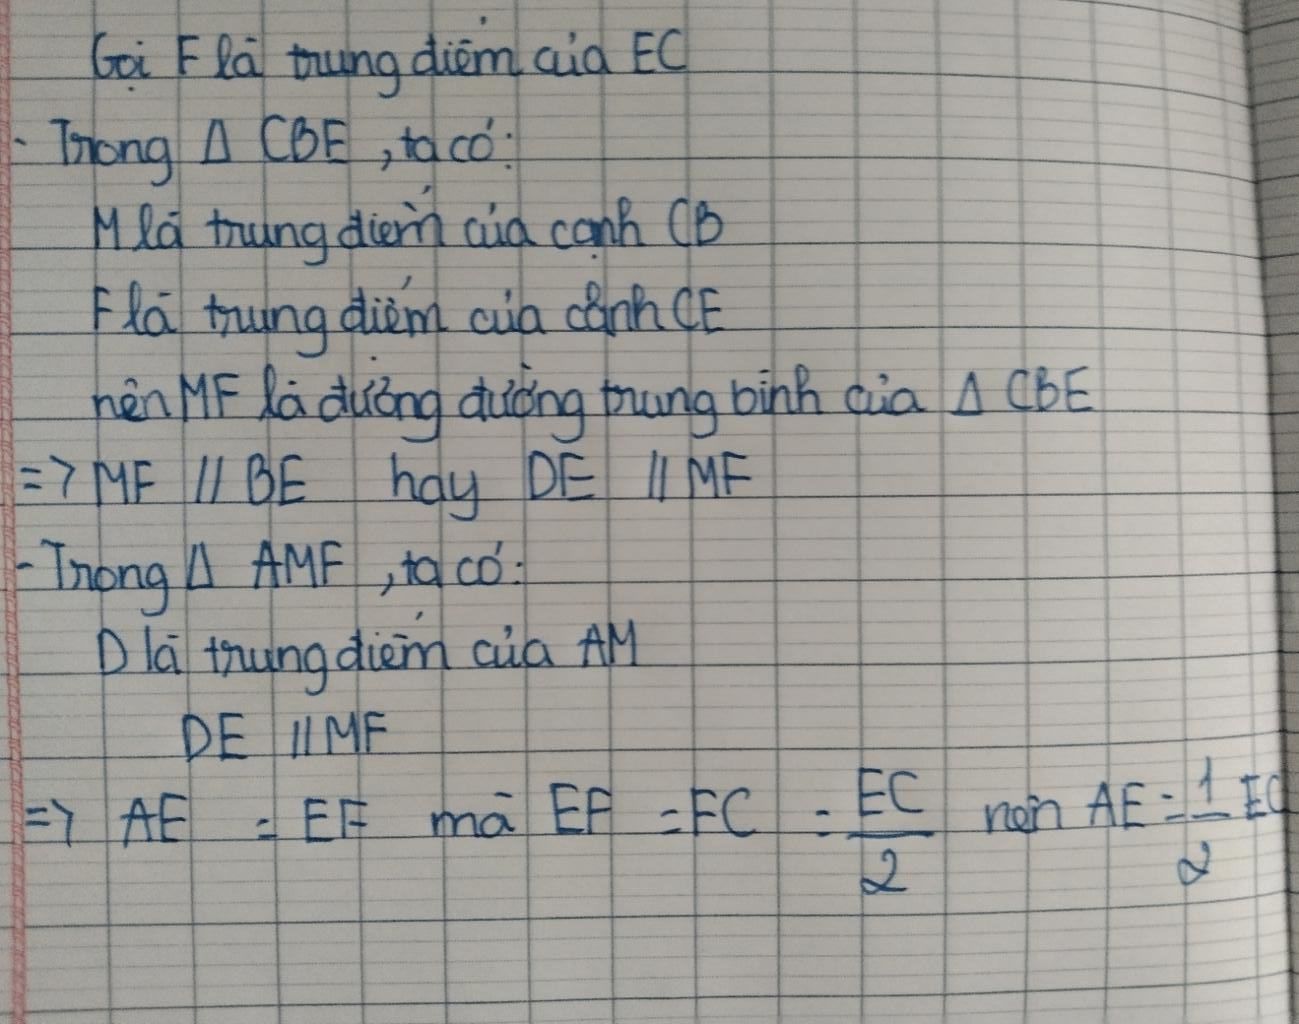 Gọi F là trung điểm của EC
- Trong Δ CBE, ta có:
M là trung điểm của cạnh CB
F là trung điểm của cạnh CE
nên MF là đường đường trung bình của Δ CBE
=> MF // BE hay DE // MF
- Trong Δ AMF, ta có:
D là trung điểm của AM
DE // MF
=> AE = EF mà EF = FC = EC/2 nên AE = 1/2 EC